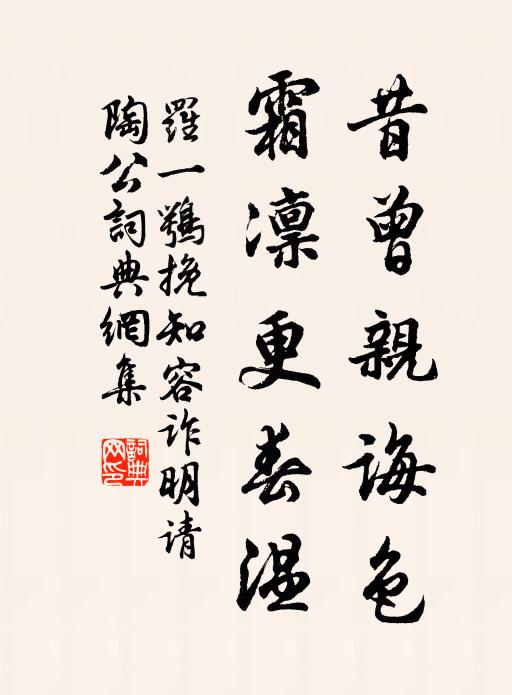 昔曾親誨色
霜凛更春温
羅一鶚挽知容诈明请
陶公詞典網集
詞典网印